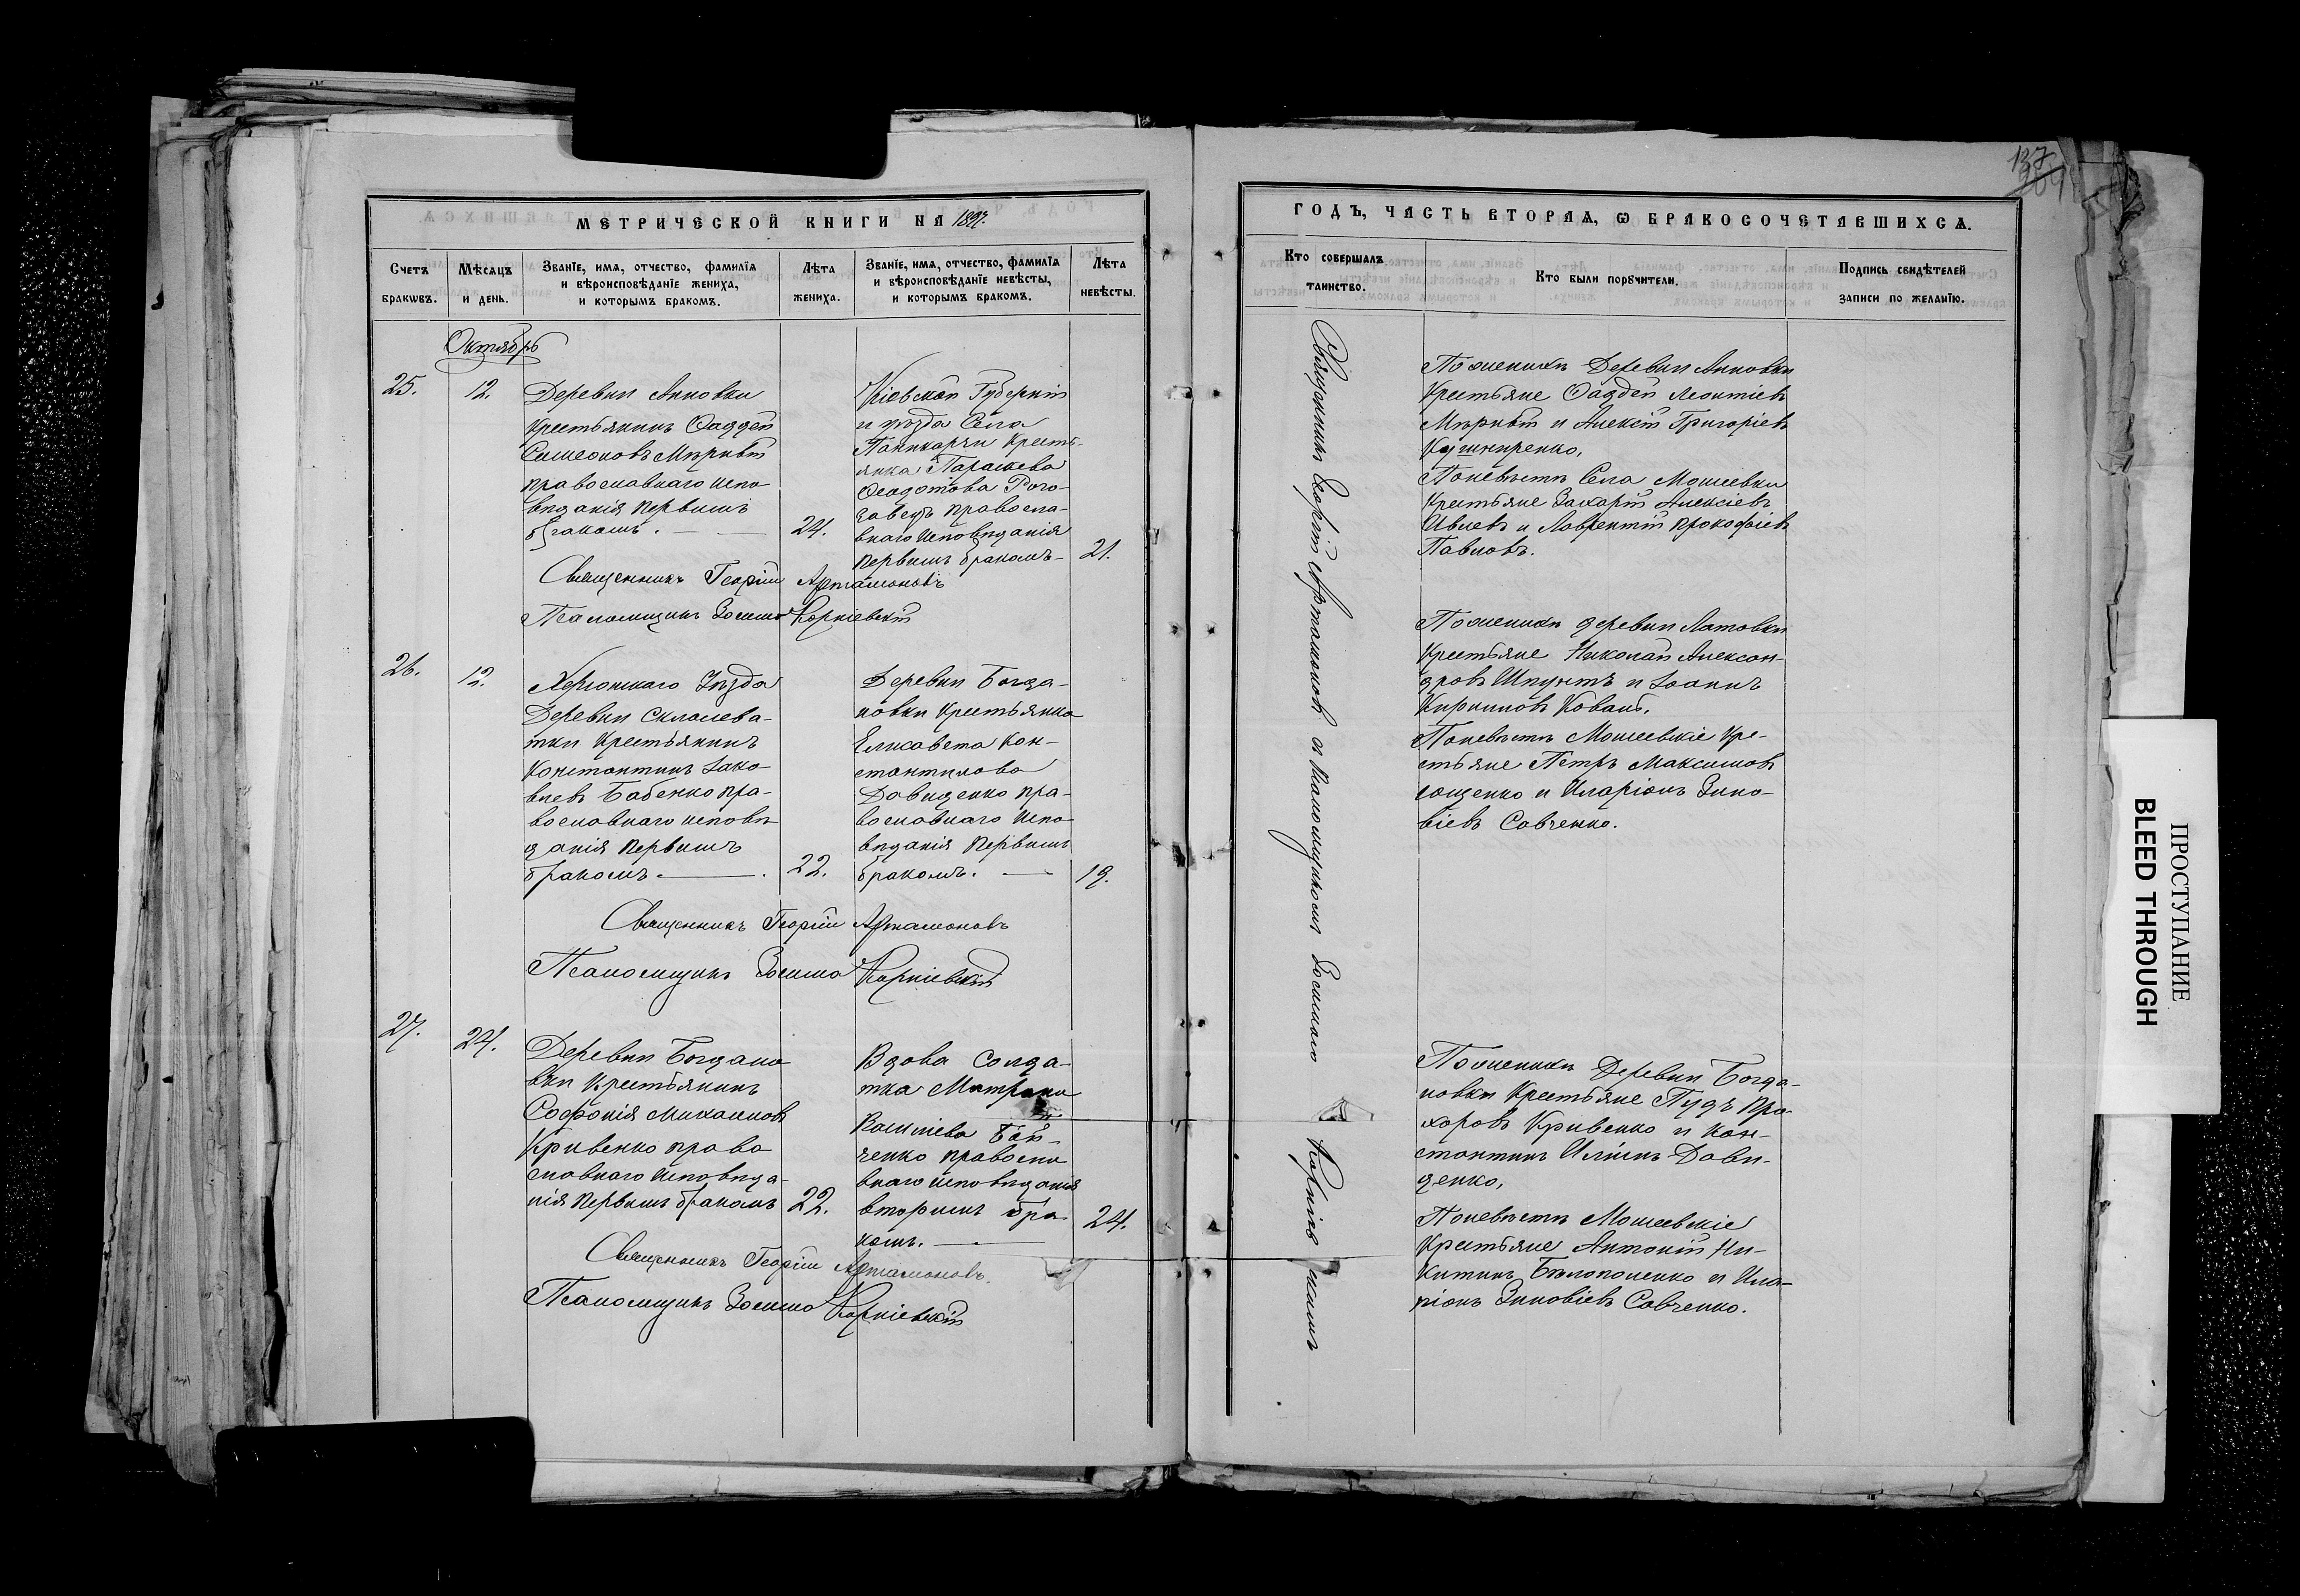 МЕТРИЧЕСКОЙ КНИГИ НА 1897.
Счетъ браковъ.
Мѣсяцъ и день.
Званіе, имя, отчество, фамилія
и вѣроисповѣданіе жениха,
и которымъ бракомъ.
Лѣта
жениха.
Званіе, имя, отчество, фамилія
и вѣроисповѣданіе невѣсты,
и которымъ бракомъ.
Лѣта
невѣсты.
Октябрь
25.
12.
Деревни Анновки
крестьянинъ Фаддей
Симеоновъ
православнаго испо
вѣданія первымъ
бракомъ.
24.
Кіевской Губерніи
и уѣзда Села
Паникарчи Кресть-
янка Параскева
Феодотова Рого-
завецъ правосла-
внаго исповѣданія
первымъ бракомъ-
21.
Священникъ Георгій Артамоновъ
Псаломщикъ Зосима Корніевскій
26.
12.
Херсонскаго Уѣзда
Деревни Скалева-
тки Крестьянинъ
Константинъ Іако-
влевъ Бабенко пра-
вославнаго исповѣ
данія первымъ
бракомъ.
22.
Деревни Богда-
новки Крестьянка
Елисавета Кон-
стантинова
Давиденко пра-
вославнаго испо-
вѣданія первымъ
бракомъ.
19.
Священникъ Георгій Артамоновъ
Псаломщикъ Зосима Корніевскій
27.
24.
Деревни Богдано
вки Крестьянинъ
Софонія Михаиловъ
Кривенко право
славнаго исповѣда-
нія первымъ бракомъ
22.
Вдова солда-
тка Матрона
Василіева
ченко правосла
внаго исповѣданія
вторымъ бра
комъ.
24.
Священникъ Георгій Артамоновъ.
Псаломщикъ Зосима Корніевскій
137
ГОДЪ, ЧАСТЬ ВТОРАЯ, Ѡ БРАКОСОЧЕТАВШИХСЯ.
Кто совершалъ
таинство.
Кто были поручители.
Подпись свидѣтелей
записи по желанію.
Священникъ Георгій Артамоновъ съ псаломщикомъ Зосимою Корніевскимъ
По женихѣ Деревни Анновки
Крестьяне Фаддей Леонтіевъ
и Алексій Григоріевъ
Кушниренко,
По невѣстѣ Села Моисеевки
Крестьяне Захарій Алексіевъ
Ивлевъ и Лаврентій Прокофіевъ
Павловъ.
По женихѣ деревни Латовки
Крестьяне Николай Алексан-
дровъ Шпунтъ и Іоаннъ
Кирилловъ Коваль,
По невѣстѣ Моисеевскіе Кре-
стьяне Петръ Максимовъ
и Иларіонъ Зино-
віевъ Савченко.
По женихѣ Деревни Богда-
новки Крестьяне Пудъ Про-
хоровъ Кривенко и Кон-
стантинъ Иліинъ Дави-
денко,
По невѣстѣ Моисеевскіе
Крестьяне Антоній Ни-
китинъ Бѣлополенко и Ила-
ріонъ Зиновіевъ Савченко.
ПРОСТУПАНИЕ
BLEED THROUGH